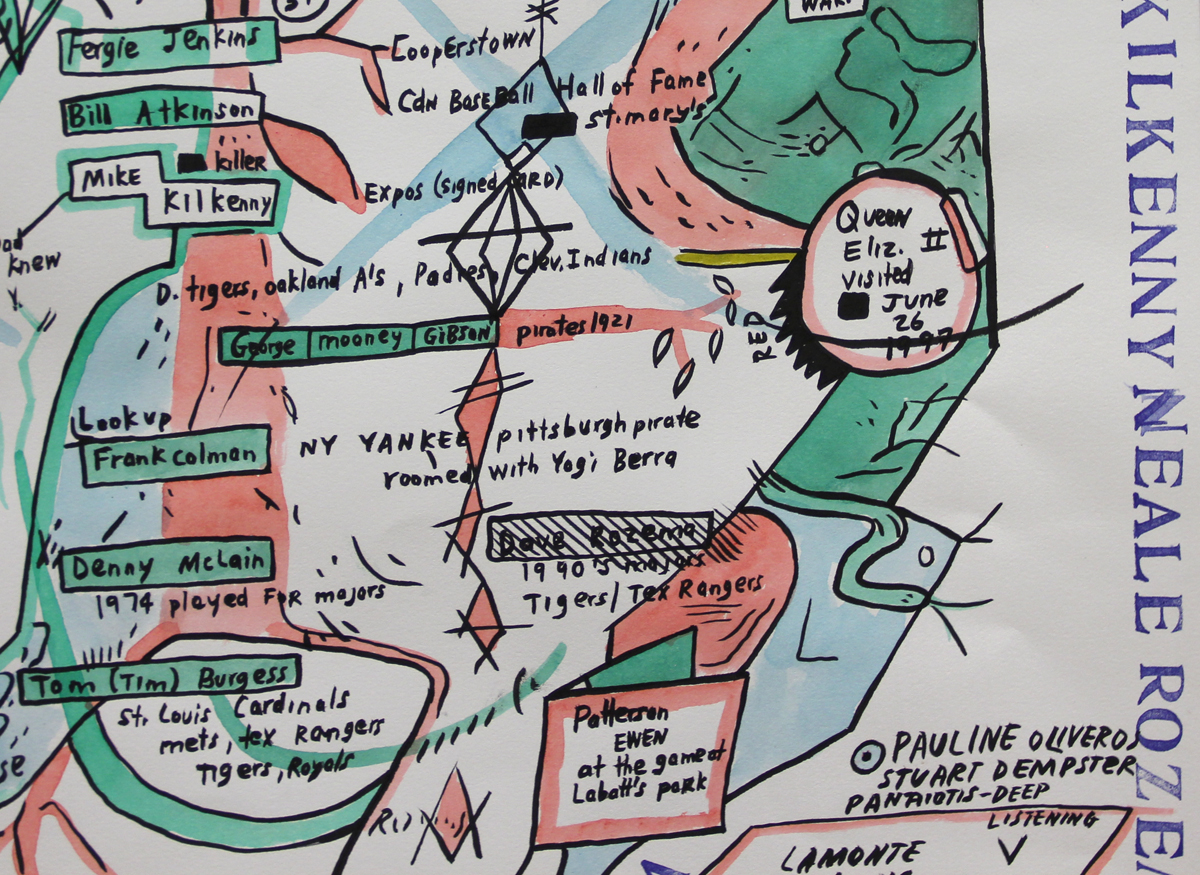 WAR!
Fergie Jenkins
Cooperstown
Cdn BaseBall Hall of Fame
St. mary's
Bill Atkinson
Expos (signed CARD)
killer
MIKE
Kilkenny
knew
D. tigers, oakland A's, Padres, Clev. Indians
George mooney GiBSON
pirates 1921
RED
Queen
Eliz. II
visited
June
26
1997
Look up
Frank colman
NY YANKEE pittsburgh pirate
roomed with Yogi Berra
Dave Rozema
1990's majors
Tigers/Tex Rangers
Denny McLain
1974 played FOR majors
Tom (Tim) Burgess
St. Louis Cardinals
mets, tex Rangers
Tigers, Royals
Patterson
EWEN
at the game at
Labatt's park
PAULINE OLIVEROS
STUART DEMPSTER
PANAIOTIS-DEEP
LISTENING
LAMONTE
KILKENNY NEALE ROZE